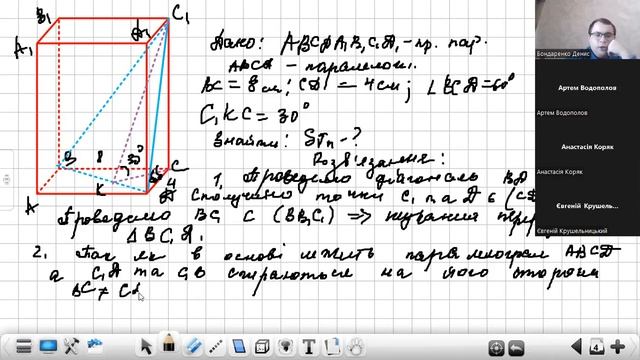 B₁
C₁
A₁
D₁
B
8
30°
C
K
60°
4
A
Дано: ABCDA₁B₁C₁D₁ - пр. пар.
ABCD - паралелогр.
BC = 8 см; CD = 4 см; ∠BCD = 60°
C₁KC = 30°
Знайти: Sп - ?
Розв'язання:
1. Проведемо діагональ BD
Сполучимо точки C₁ та D ∈
Проведемо BC₁ ⊂ (BB₁C₁) ⇒ шуканий
△BC₁D.
2. Так як в основі лежить паралелограм ABCD
а C₁D та C₁B спираються на його сторони
BC ≠ CD
Бондаренко Денис
Артем Водополов
Артем Водополов
Анастасія Коряк
Анастасія Коряк
Євгеній Крушель...
Євгеній Крушельницький
4